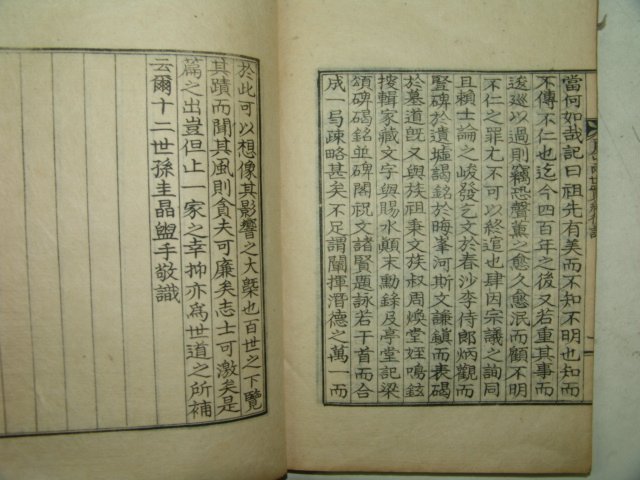 當何如哉記曰祖先有美而不知不明也知而
不傳不仁也迄今四百年之後又若重其事而
逡巡以過則竊恐聲薰之愈久愈泯而顧不明
不仁之罪尤不可以終逭也肆因宗議之詢同
且賴士論之峻發乞文於春沙李侍郎炳觀而
竪碑於遺墟謁銘於晦峯河斯文謙鎭而表碣
於墓道旣又與族祖秉文族叔周煥堂姪鳴鉉
按輯家藏文字與賜水顚末勳錄及亭堂記梁
頌碑碣銘並碑閣祝文諸賢題詠若干首而合
成一局疎略甚矣不足謂闡揮潛德之萬一而
於此可以想像其影響之大槩也百世之下覽
其蹟而聞其風則貪夫可廉矣志士可激矣是
篇之出豈但止一家之幸抑亦爲世道之所補
云爾十二世孫圭晶盥手敬識